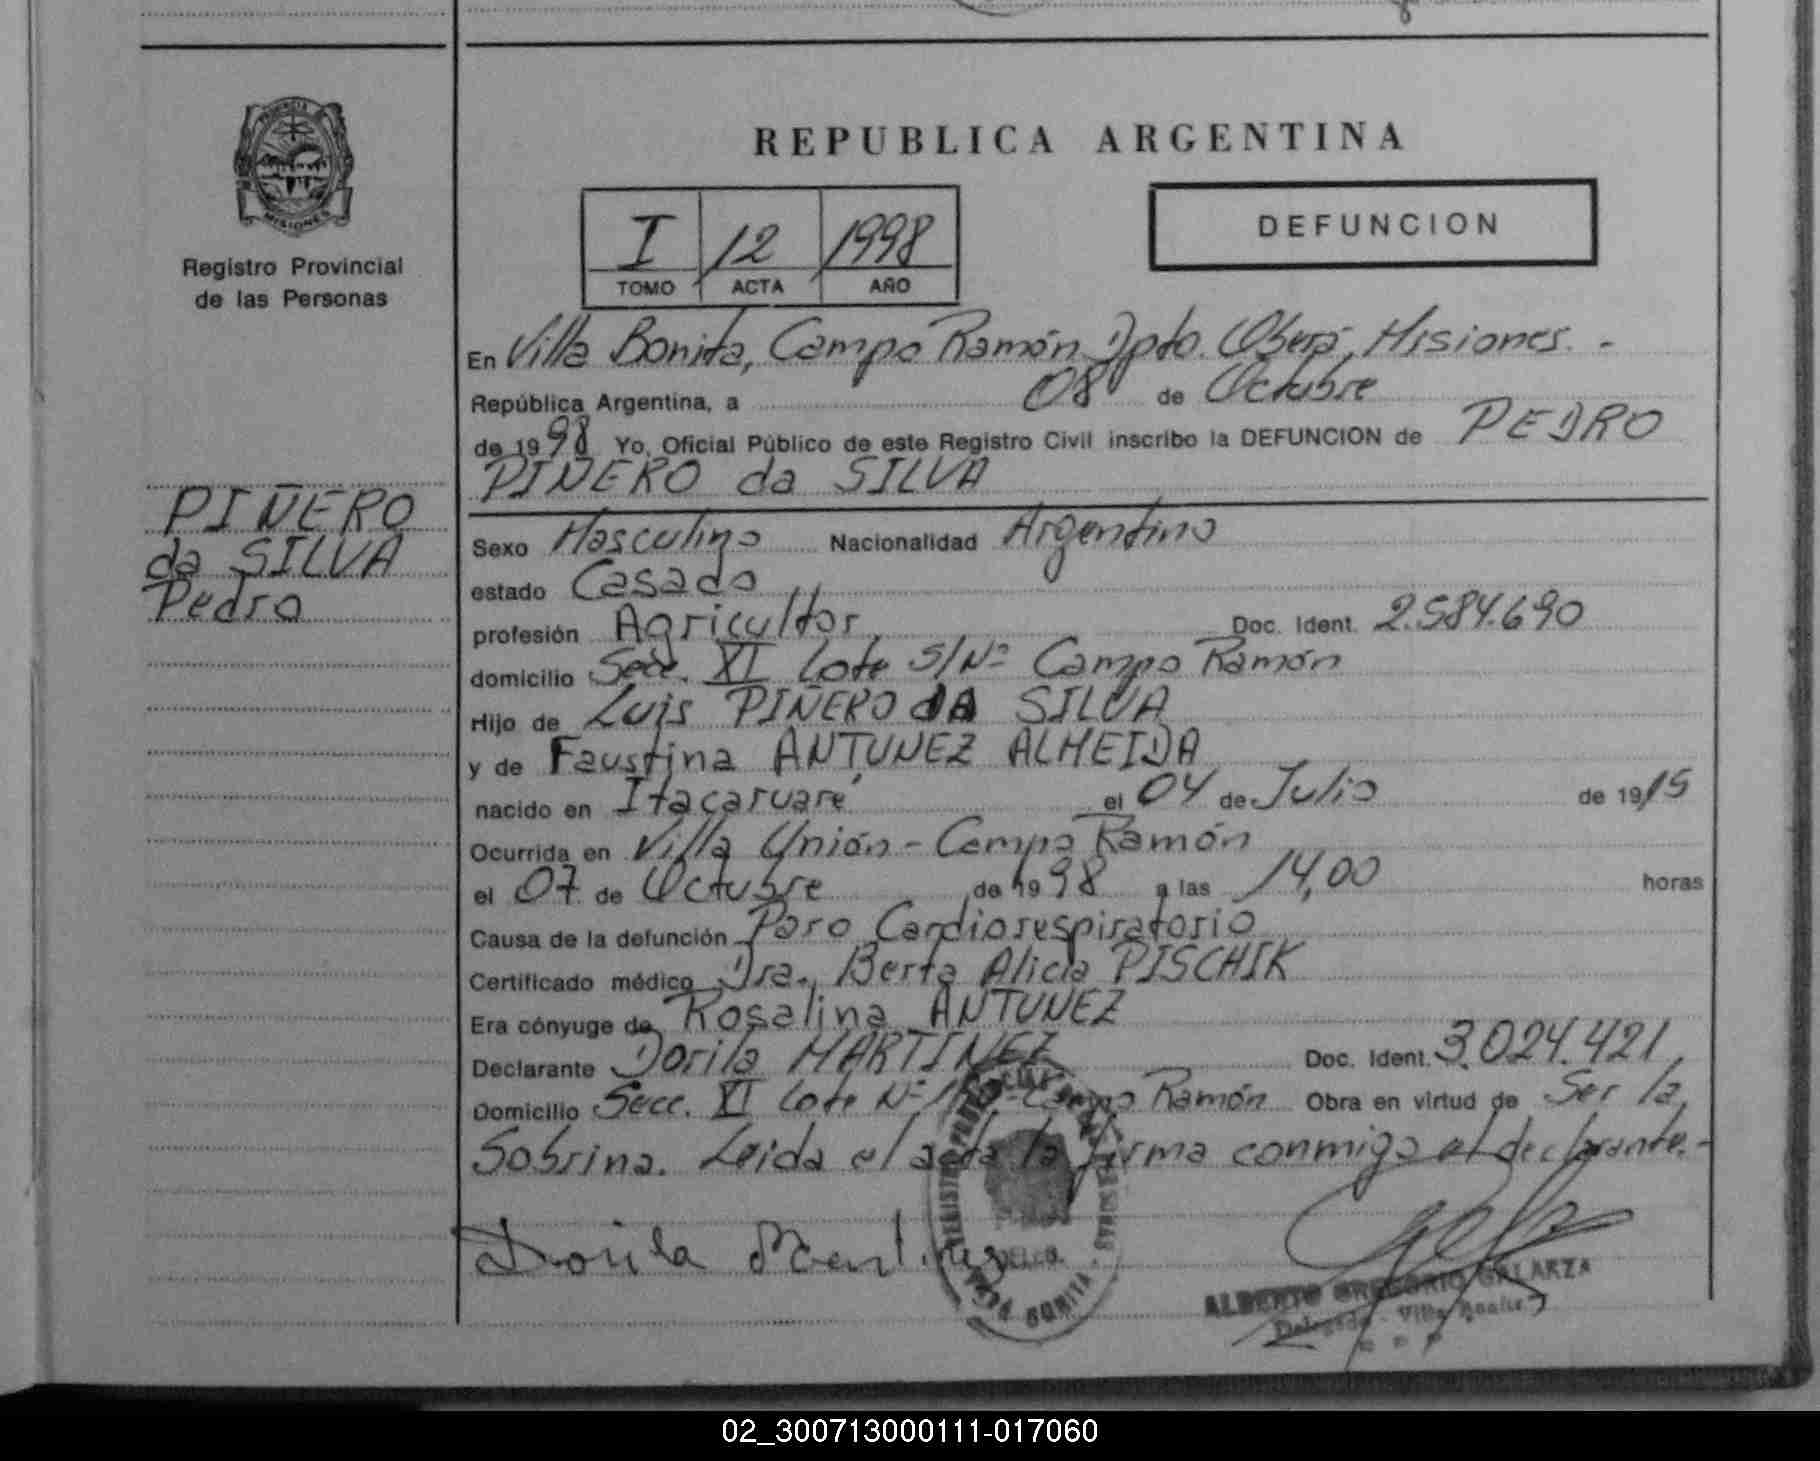 PROVINCIA
MISIONES
Registro Provincial
de las Personas
REPUBLICA ARGENTINA
I 12 1998
TOMO ACTA AÑO
DEFUNCION
En Villa Bonita, Campo Ramón Dpto. Oberá, Misiones. -
República Argentina, a 08 de Octubre
de 1998 Yo, Oficial Público de este Registro Civil inscribo la DEFUNCION de PEDRO
PIÑERO da SILVA
PIÑERO
da SILVA
Pedro
Sexo Masculino Nacionalidad Argentino
estado Casado
profesión Agricultor Doc. Ident. 2.584.690
domicilio Secc. XI Lote S/Nº Campo Ramón
Hijo de Luis PIÑERO DA SILVA
y de Faustina ANTUNEZ ALMEIDA
nacido en Itacaruaré el 04 de Julio de 1915
Ocurrida en Villa Unión - Campo Ramón
el 07 de Octubre de 1998 a las 14,00 horas
Causa de la defunción Paro Cardiorespiratorio
Certificado médico Dra. Berta Alicia PISCHIK
Era cónyuge de Rosalina ANTUNEZ
Declarante Dorila MARTINEZ Doc. Ident. 3.024.421
Domicilio Secc. XI Lote Nº Campo Ramón Obra en virtud de Ser la
Sobrina. Leida el acta la firma conmigo el declarante.-
Dorila Martinez
ALBERTO GREGORIO GALARZA
Delegado - Villa Bonita
02_300713000111-017060